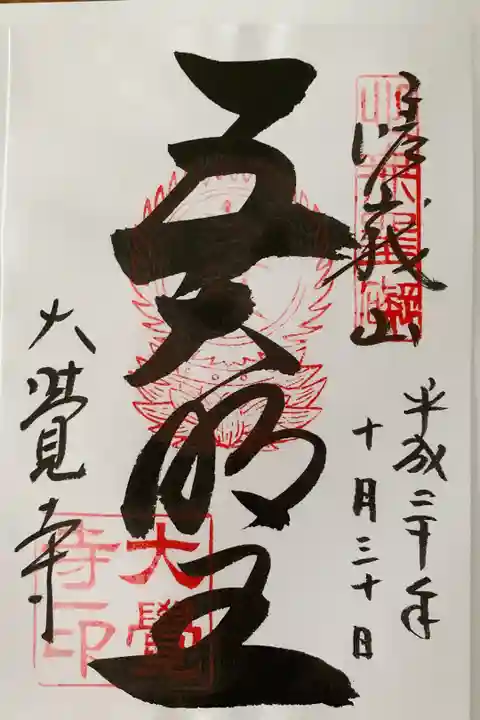 嵯峨山
平成三十年
十月三十日
五大明王
大覺寺
大覺
寺印